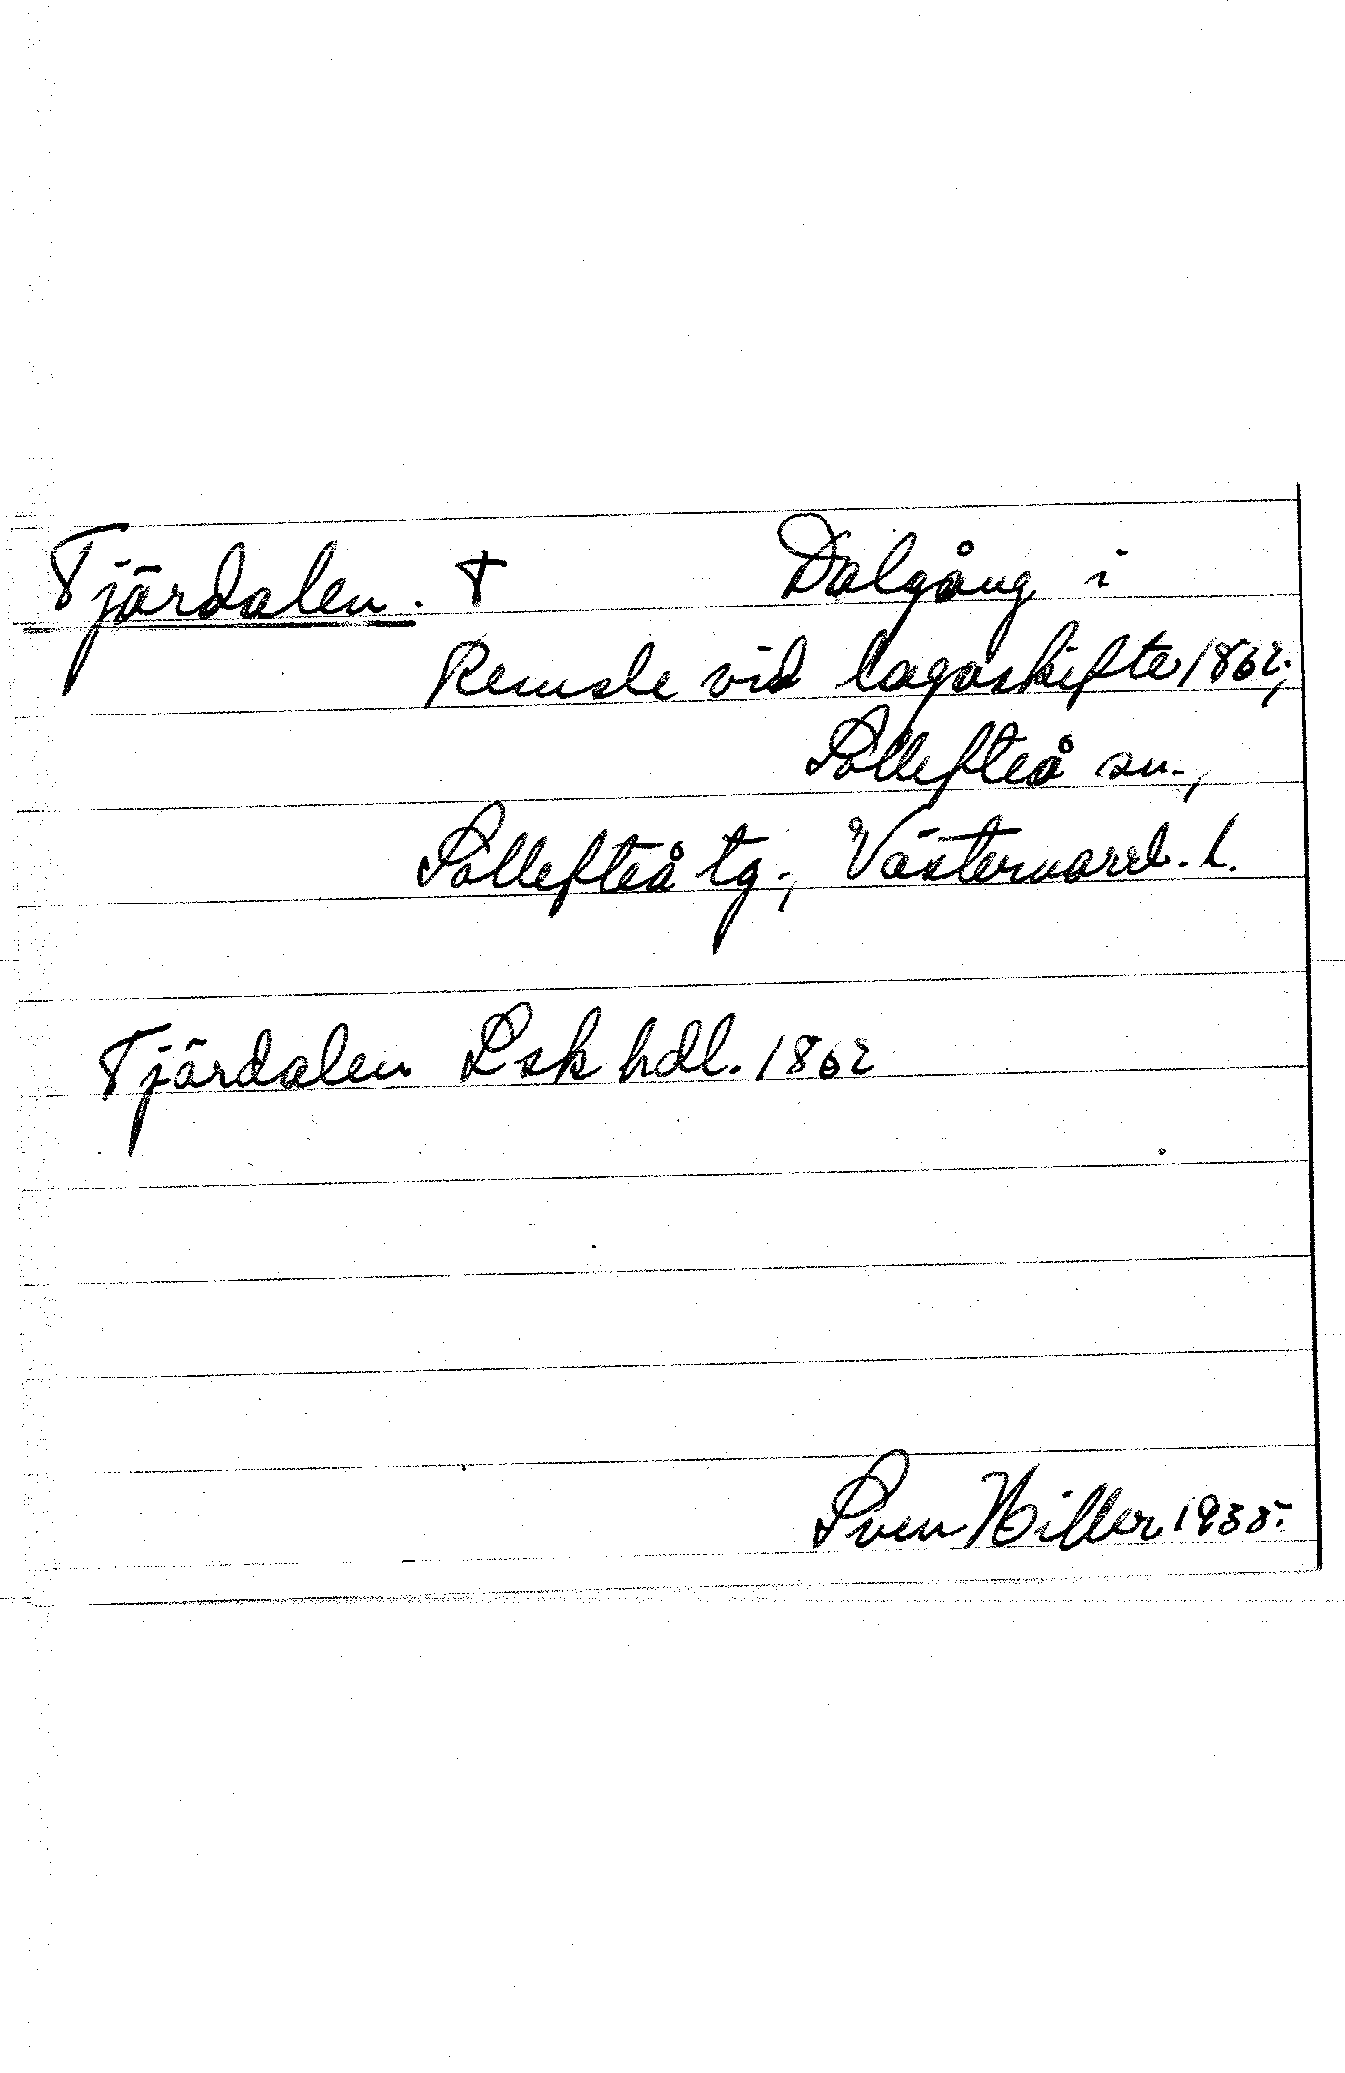 Tjärdalen. † Dalgång i
Remsle vid lagaskifte 1862;
Sollefteå sn.,
Sollefteå tg., Västernorrl. l.
Tjärdalen Lsk hdl. 1862
Sven Hiller 1935.